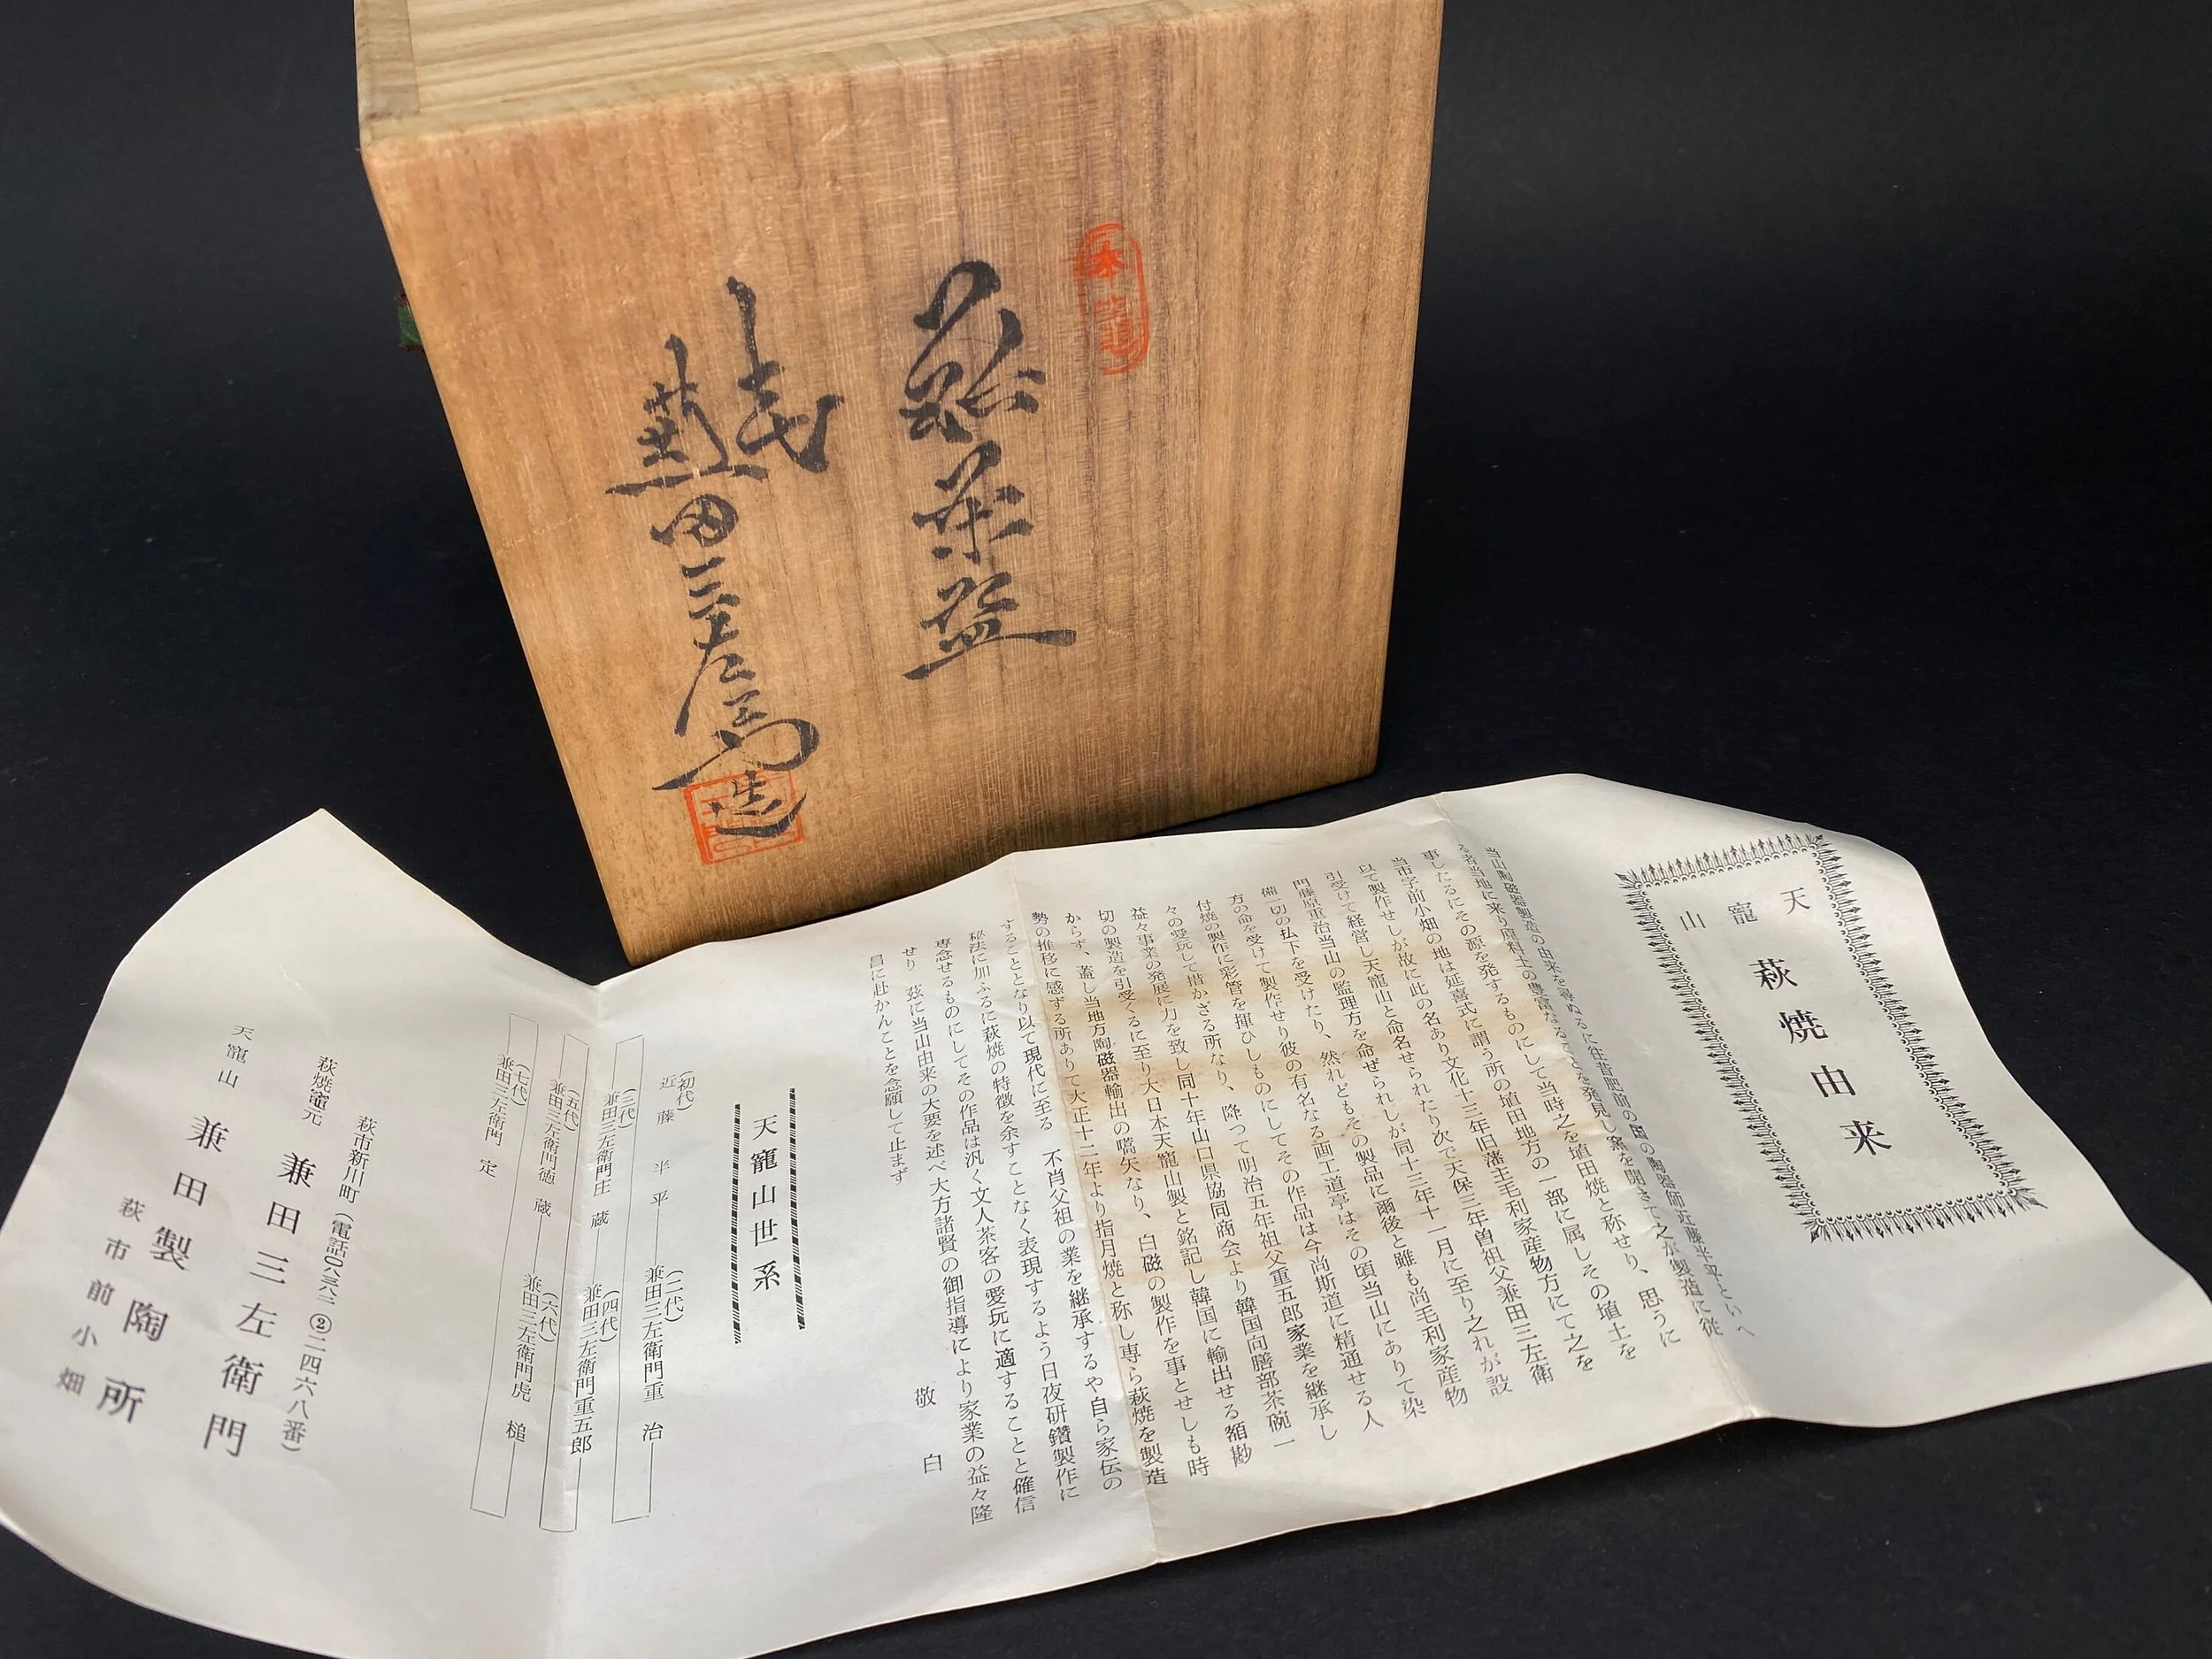 萩茶盌
兼田三左衛門造
天寵山
萩焼由来
当山陶磁器製造の由来を尋ぬるに往昔肥前の国の陶器師近藤半平といへ
る者当地に来り原料土の豊富なることを発見し窯を開きて之が製造に従
事したるにその源を発するものにして当時之を埴田焼と称せり、思うに
当市字前小畑の地は延喜式に謂う所の埴田地方の一部に属しその埴土を
以て製作せしが故に此の名あり文化十三年旧藩主毛利家産物方にて之を
引受けて経営し天寵山と命名せられたり次で天保三年曽祖父兼田三左衛
門藤原重治当山の監理方を命ぜられしが同十三年十一月に至り之れが設
備一切の払下を受けたり、然れどもその製品に爾後と雖も尚毛利家産物
方の命を受けて製作せり彼の有名なる画工道亭はその頃当山にありて染
付焼の製作に彩管を揮ひしものにしてその作品は今尚斯道に精通せる人
々の愛玩して措かざる所なり、降つて明治五年祖父重五郎家業を継承し
益々事業の発展に力を致し同十年山口県協同商会より韓国向膳部茶碗一
切の製造を引受くるに至り大日本天寵山製と銘記し韓国に輸出せる額尠
からず、蓋し当地方陶磁器輸出の嚆矢なり、白磁の製作を事とせしも時
勢の推移に感ずる所ありて大正十二年より指月焼と称し専ら萩焼を製造
することとなり以て現代に至る　不肖父祖の業を継承するや自ら家伝の
秘法に加ふるに萩焼の特徴を余すことなく表現するよう日夜研鑽製作に
専念せるものにしてその作品は汎く文人茶客の愛玩に適することと確信
せり　茲に当山由来の大要を述べ大方諸賢の御指導により家業の益々隆
昌に赴かんことを念願して止まず
敬白
天寵山世系
(初代)
近藤平平
(二代)
兼田三左衛門重治
(三代)
兼田三左衛門庄蔵
(四代)
兼田三左衛門重五郎
(五代)
兼田三左衛門徳蔵
(六代)
兼田三左衛門虎槌
(七代)
兼田三左衛門定
萩市新川町(電話〇八三八二②二四六八番)
萩焼窯元　兼田三左衛門
天寵山　兼田製陶所
萩市前小畑